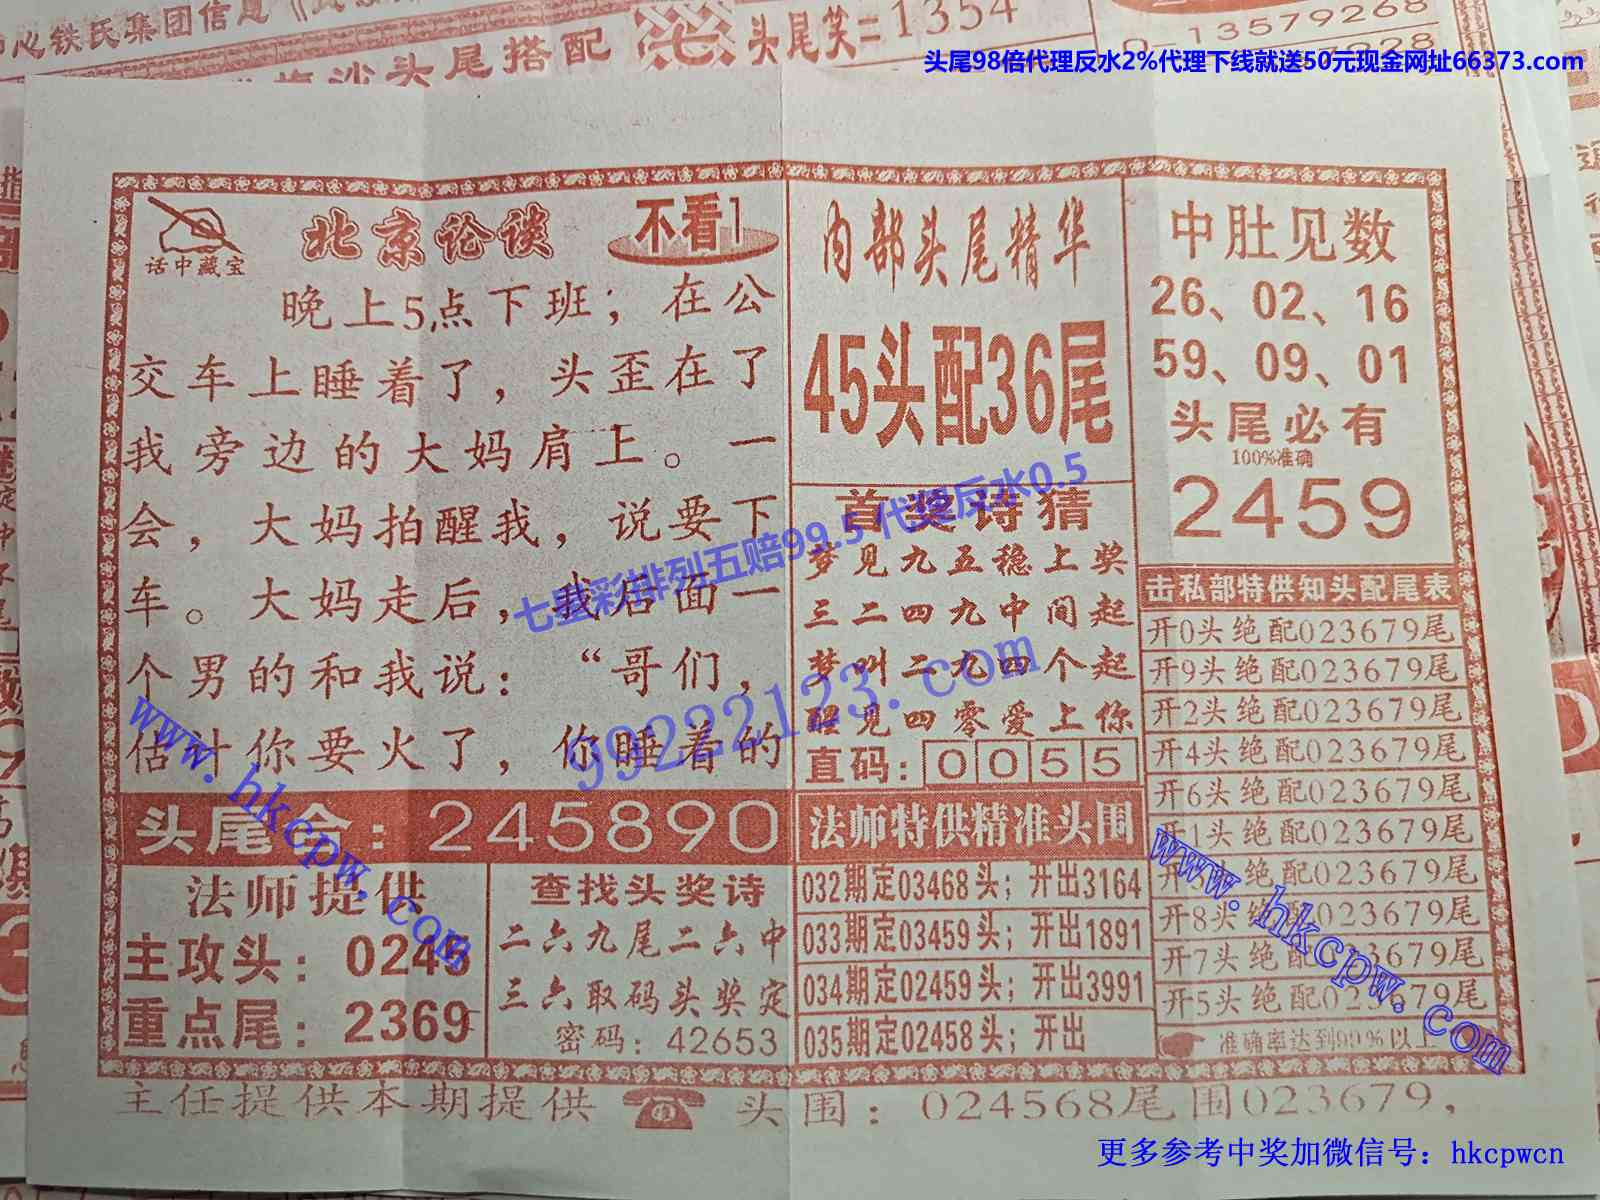 中心铁氏集团信息
头尾搭配
头尾笑=1354
13579268
头尾98倍代理反水2%代理下线就送50元现金网址66373.com
话中藏宝
北京论谈
不看1
晚上5点下班；在公
交车上睡着了，头歪在了
我旁边的大妈肩上。一
会，大妈拍醒我，说要下
车。大妈走后，我后面一
个男的和我说：“哥们，
估计你要火了，你睡着的
头尾合：245890
法师提供
主攻头：0245
重点尾：2369
查找头奖诗
二六九尾二六中
三六取码头奖定
密码：42653
内部头尾精华
45头配36尾
首奖诗猜
梦见九五稳上奖
三二四九中间起
梦叫二九四个起
醒见四零爱上你
直码：0055
法师特供精准头围
032期定03468头；开出3164
033期定03459头；开出1891
034期定02459头；开出3991
035期定02458头；开出
中肚见数
26、02、16
59、09、01
头尾必有
100%准确
2459
击私部特供知头配尾表
开0头绝配023679尾
开9头绝配023679尾
开2头绝配023679尾
开4头绝配023679尾
开6头绝配023679尾
开1头绝配023679尾
开3头绝配023679尾
开8头绝配023679尾
开7头绝配023679尾
开5头绝配023679尾
准确率达到99%以上
主任提供本期提供 头围：024568尾围023679，
七星彩排列五赔99.5 代奖反水0.5
99222123.com
www.hkcpw.com
www.hkcpw.com
更多参考中奖加微信号：hkcpwcn